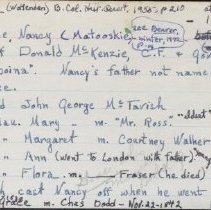 (Wolfenden) B.Col. Hist. Quart. 1938 p.210
see Beaver,
winter, 1972
p. 19
ce, Nancy (Matooskie)
f Donald McKenzie, C.F.
oina". Nancy's father not name
ce.
d John George McTavish
au. Mary - m "Mr. Ross."
" Margaret m. Courtney Walker
" Ann (went to London with father)
" Flora m. Fraser (he died)
h cast Nancy off when he went
Grace m. Chas Dodd - Nov. 22-1842